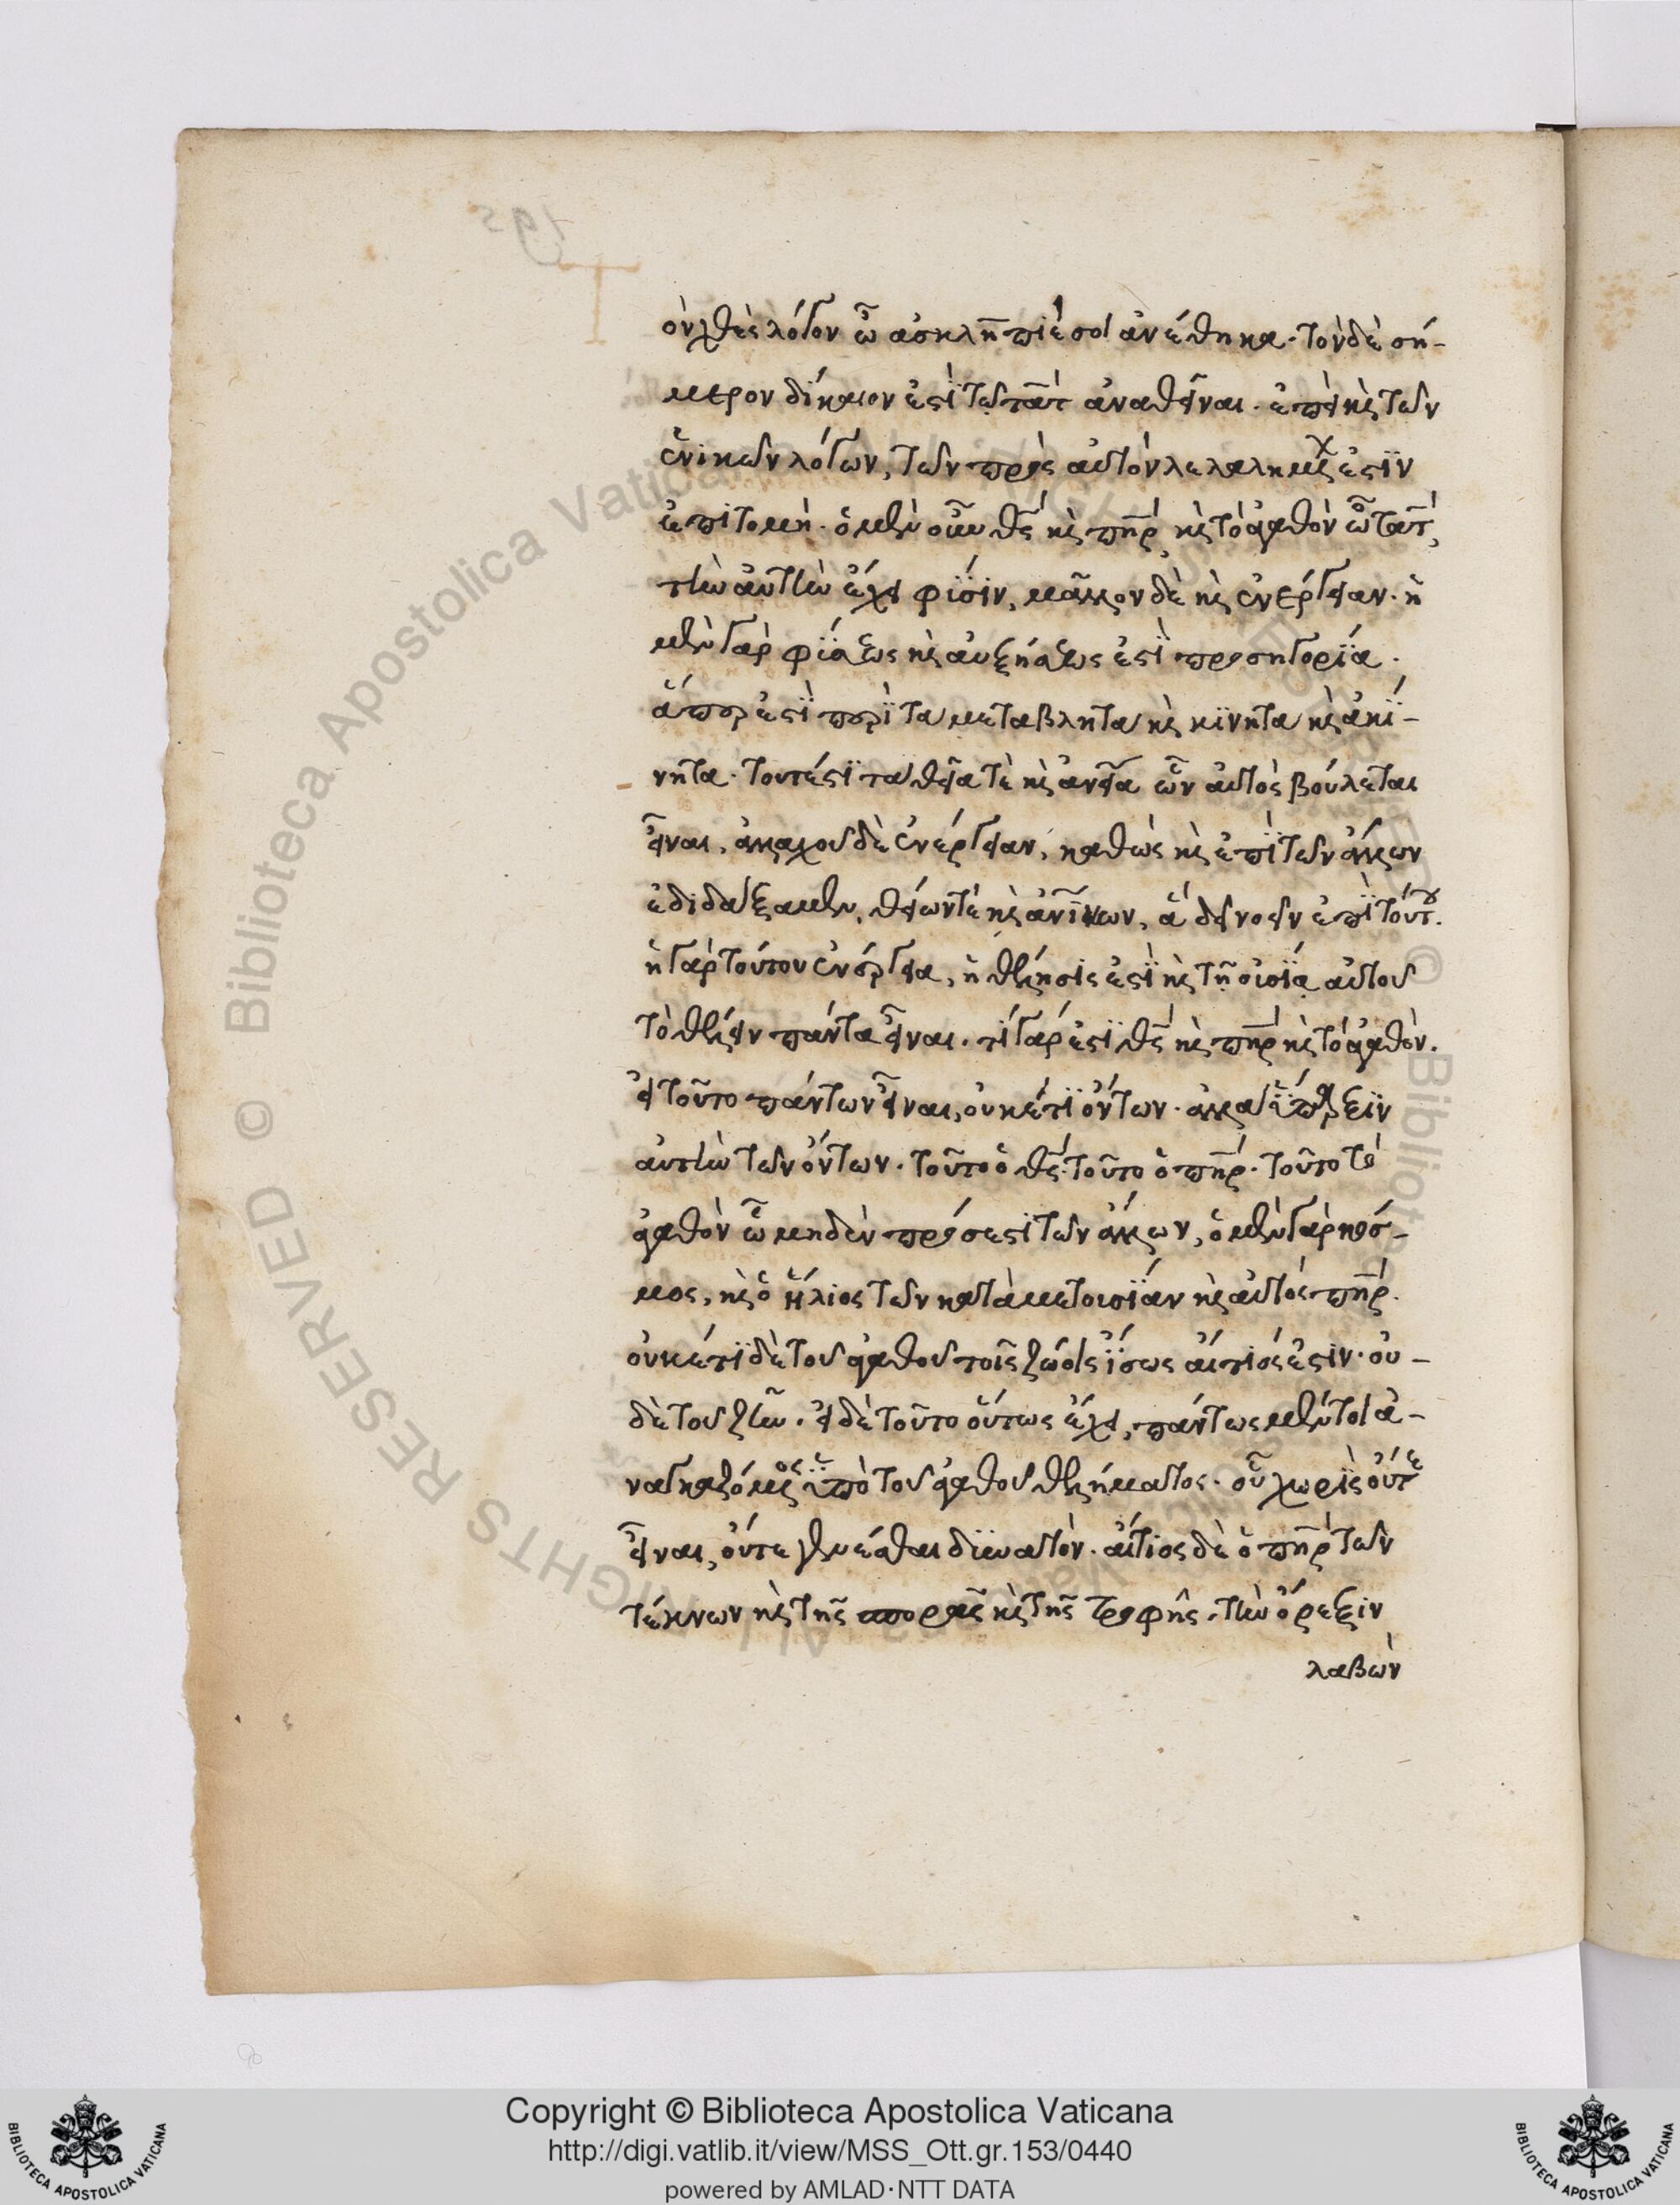 ὸν χθὲς λόγον ὦ ἀσκληπιέ σοὶ ἀνέθηκα· τὸν δὲ σή-
μερον δίκαιον ἐστὶ τῷ τὰτ ἀναθεῖναι· ἐπεὶ καὶ τῶν
ἑνικῶν λόγων, τῶν πρὸς αὐτὸν λελαλημένων ἐστὶν
ἐπιτομή· ὁ μὲν οὖν θς καὶ πηρ καὶ τὸ ἀγαθὸν ὦ τὰτ,
τὴν αὐτὴν ἔχει φύσιν, μᾶλλον δὲ καὶ ἐνέργειαν· ἡ
μὲν γὰρ φύσεως καὶ αὐξήσεως ἐστὶ προσηγορία·
ἅπερ ἐστὶ περὶ τὰ μεταβλητὰ καὶ κινητὰ καὶ ἀκί-
νητα· τουτέστι τὰ θεῖα τὲ καὶ ἀνεῖα ὧν αὐτὸς βούλεται
εἶναι, ἀλλαχοῦ δὲ ἐνέργειαν, καθὼς καὶ ἐπὶ τῶν ἄλλων
ἐδιδάξαμεν, θείων τὲ καὶ ἀνίνων, ἃ δεῖ νοεῖν ἐπὶ τούτου.
ἡ γὰρ τούτου ἐνέργεια, ἡ θέλησις ἐστὶ καὶ τῇ οὐσίᾳ αὐτοῦ
τὸ θέλειν πάντα εἶναι. τί γάρ ἐστι θς καὶ πηρ καὶ τὸ ἀγαθόν.
εἰ τοῦτο πάντων εἶναι, οὐκέτι ὄντων· ἀλλὰ ὕπαρξιν
αὐτὴν τῶν ὄντων. τοῦτο ὁ θς· τοῦτο ὁ πηρ· τοῦτο τὸ
ἀγαθὸν ᾧ μηδὲν πρόσεστι τῶν ἄλλων, ὁ μὲν γὰρ κόσ-
μος, καὶ ὁ ἥλιος τῶν κατὰ μετουσίαν καὶ αὐτὸς πηρ.
οὐκέτι δὲ τοῦ ἀγαθοῦ τοῖς ζώοις ἴσως αἴτιός ἐστιν· οὐ-
δὲ τοῦ ζῆν. εἰ δὲ τοῦτο οὕτως ἔχει, πάντως μέντοι ἀ-
ναγκαζόμενος ὑπὸ τοῦ ἀγαθοῦ θελήματος· οὗ χωρὶς οὔτε
εἶναι, οὔτε γενέσθαι δυνατόν. αἴτιος δὲ ὁ πηρ τῶν
τέκνων καὶ τῆς σπορᾶς καὶ τῆς τροφῆς, τὴν ὄρεξιν
λαβὼν
Copyright © Biblioteca Apostolica Vaticana
http://digi.vatlib.it/view/MSS_Ott.gr.153/0440
powered by AMLAD·NTT DATA